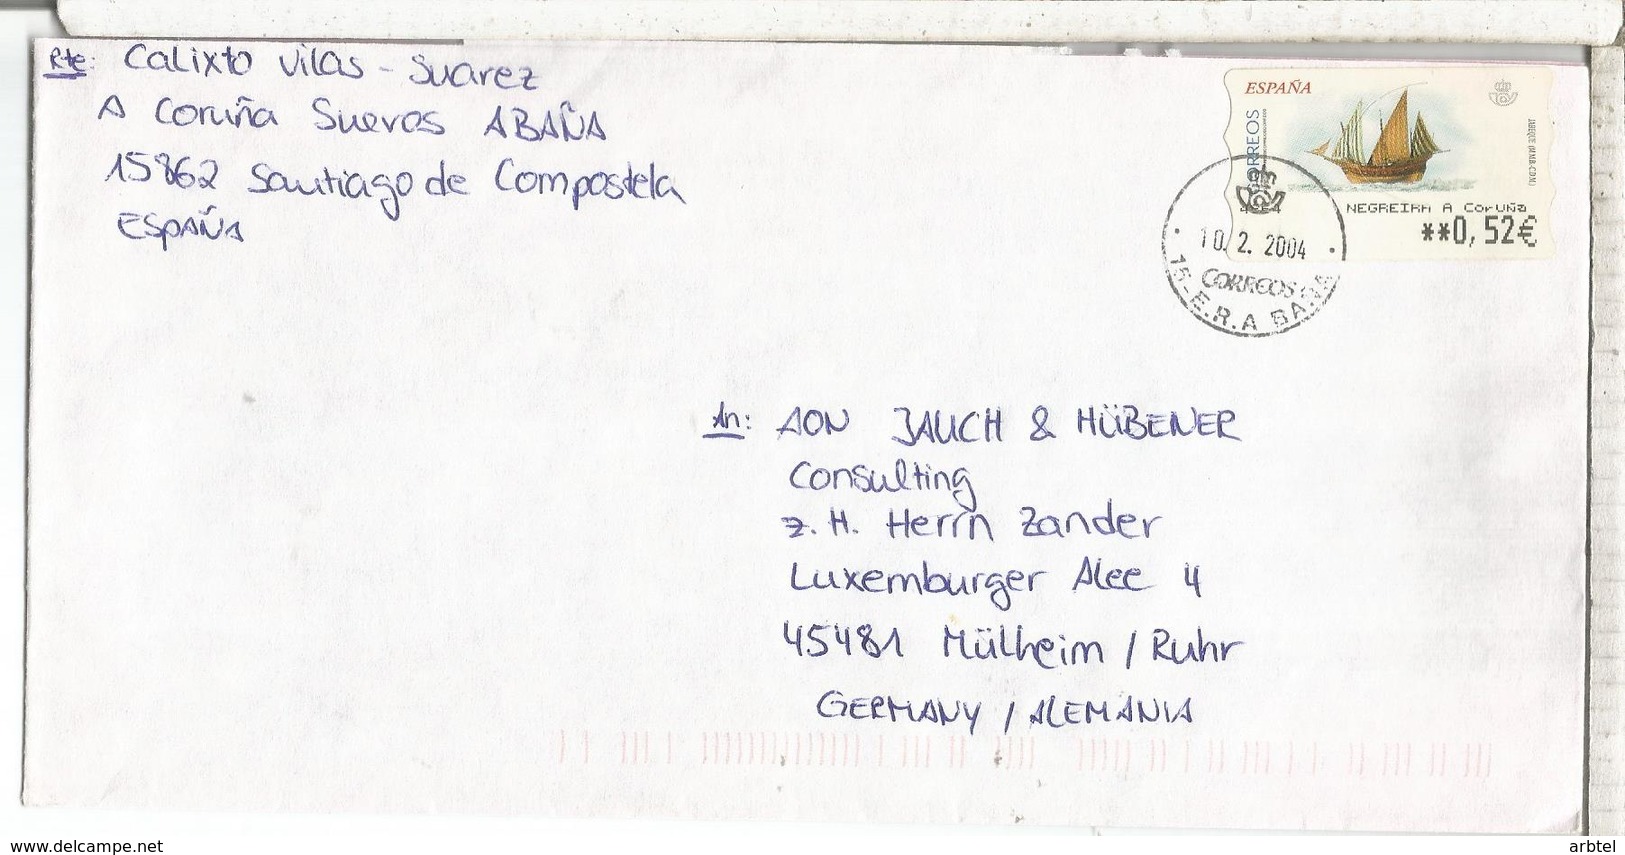 Rte: Calixto Vilas - Suarez
A Coruña Sueros ABAÑA
15862 Santiago de Compostela
ESPAÑA
ESPAÑA
CORREOS
JABEQUE (M.M.B.-CDM.)
NEGREIRA A Coruña
**0,52€
10. 2. 2004
CORREOS
15-E.R.A BA
An: AON JAUCH & HÜBENER
Consulting
z. H. Herrn Zander
Luxemburger Alee 4
45481 Mülheim / Ruhr
GERMANY / ALEMANIA
www.delcampe.net
arbtel